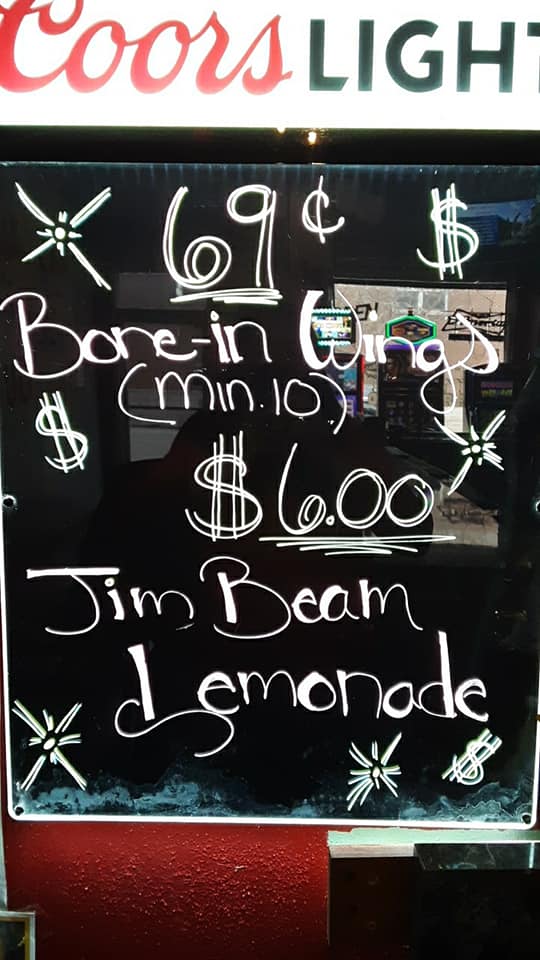 Coors LIGHT
69¢ $
Bone-in Wings
(Min. 10)
$
$6.00
Jim Beam
Lemonade
$